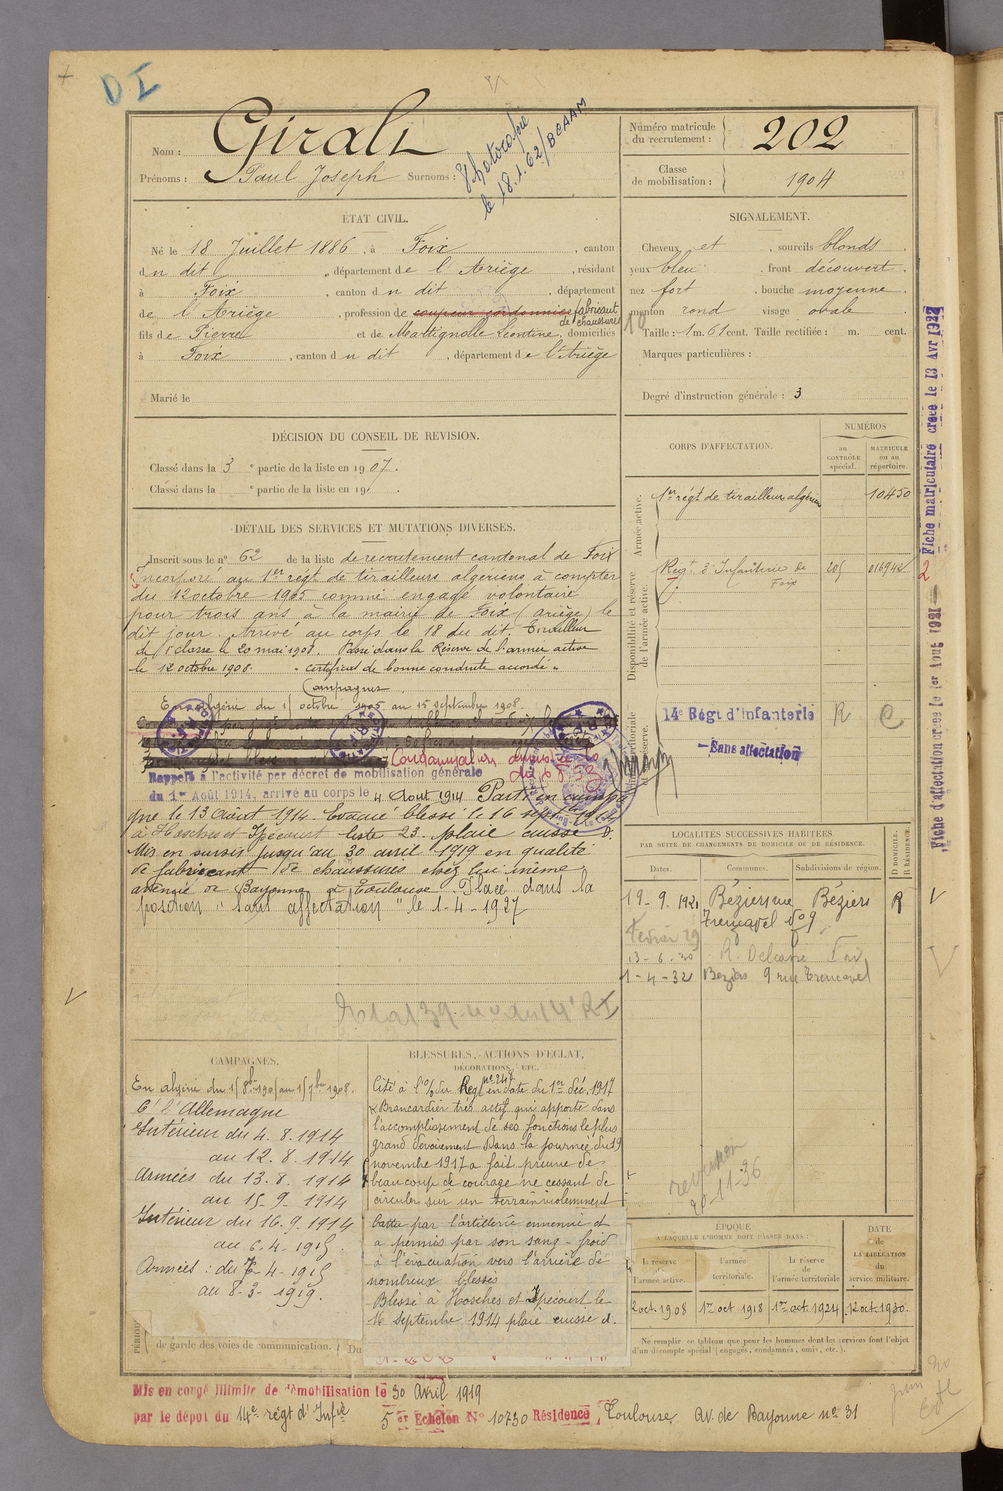 D I
Nom : Giralt
Prénoms : Paul Joseph Surnoms :
Photocopie
le 18.1.62/BCAAM
Numéro matricule
du recrutement : 202
Classe
de mobilisation : 1904
ÉTAT CIVIL.
Né le 18 Juillet 1886, à Foix, canton
dn dit, département de l'Ariège, résidant
à Foix, canton dn dit, département
de l'Ariège, profession de coupeur cordonnier fabricant
de chaussures
fils de Pierre et de Léontine, domiciliés
à Foix, canton dn dit, département de l'Ariège
Marié le
SIGNALEMENT.
Cheveux et, sourcils blonds
yeux bleu, front découvert.
nez fort, bouche moyenne.
menton rond visage ovale
Taille : 1 m. 61 cent. Taille rectifiée : m. cent.
Marques particulières :
Degré d'instruction générale : 3
DÉCISION DU CONSEIL DE REVISION.
Classé dans la 3e partie de la liste en 1907.
Classé dans la e partie de la liste en 19 .
CORPS D'AFFECTATION.
NUMÉROS
au
CONTRÔLE
spécial.
MATRICULE
ou au
répertoire.
Armée active.
1er régt de tirailleurs algériens 10450
Disponibilité et réserve
de l'armée active.
Regt d'Infanterie de
Foix
14e Régt d'Infanterie R C
Sans affectation
DÉTAIL DES SERVICES ET MUTATIONS DIVERSES.
Inscrit sous le n° 62 de la liste de recrutement cantonal de Foix
Incorporé au 1er régt de tirailleurs algériens à compter
du 12 octobre 1905 comme engagé volontaire
pour trois ans à la mairie de Foix (Ariège) le
dit jour. Arrivé au corps le 18 du dit. Tirailleur
de 1e classe le 20 mai 1908. Passé dans la Réserve de l'armée active
le 12 octobre 1908. "Certificat de bonne conduite accordé"
Campagnes
En Algérie du 15 octobre 1905 au 15 septembre 1908.
Condamnation
Rappelé à l'activité par décret de mobilisation générale
du 1er Août 1914, arrivé au corps le 4 Août 1914 Parti en campa
gne le 13 Août 1914. Evacué blessé le 16 sept 1914
à Hosches et Spécourt liste 23. plaie cuisse D.
Mis en sursis jusqu'au 30 avril 1919 en qualité
de fabricant de chaussures chez lui même
avenue de Bayonne à Toulouse. Placé dans la
position "sans affectation" le 1-4-1927
LOCALITÉS SUCCESSIVES HABITÉES
PAR SUITE DE CHANGEMENTS DE DOMICILE OU DE RÉSIDENCE.
Dates. Communes. Subdivisions de région.
D DOMICILE.
R RÉSIDENCE.
19-9-1921 Béziers rue Béziers R
Trencavel No 9
Février 29
13-6-30 R. Delcassé Foix
1-4-32 Béziers 9 rue Trencavel
revision
20-11-36
CAMPAGNES.
En algérie du 15 8bre 1905 au 15 7bre 1908.
Ct l'Allemagne
Intérieur du 4. 8. 1914
au 12. 8. 1914
Armées du 13. 8. 1914
au 15. 9. 1914
Intérieur du 16. 9. 1914
au 6. 4. 1915.
Armées : du 7-4-1915
au 8-3-1919.
de garde des voies de communication. Du
BLESSURES, ACTIONS D'ÉCLAT,
DÉCORATIONS, ETC.
Cité à l'O/ du Regt n° 247 en date du 1er déc. 1917
"Brancardier très actif qui apporte dans
l'accomplissement de ses fonctions le plus
grand dévouement Dans la journée du 19
novembre 1917 a fait preuve de
beaucoup de courage ne cessant de
circuler sur un terrain violemment
battu par l'artillerie ennemie et
a permis par son sang-froid
à l'évacuation vers l'arrière de
nombreux blessés
Blessé à Hosches et Spécourt le
16 Septembre 1914 plaie cuisse d.
ÉPOQUE
À LAQUELLE L'HOMME DOIT PASSER DANS :
la réserve
de
l'armée active.
l'armée
territoriale.
la réserve
de
l'armée territoriale
DATE
de
LA LIBÉRATION
du
service militaire.
12 oct. 1908 1er oct 1918 1er oct. 1924 12 oct. 1930.
Ne remplir ce tableau que pour les hommes dont les services font l'objet
d'un décompte spécial (engagés, condamnés, omis, etc.).
Mis en congé illimité de démobilisation le 30 Avril 1919
par le dépot du 14e régt d'Infie 5er Echelon N° 10730 Résidence Toulouse. Av. de Bayonne no 31
Fiche matriculaire créée le 13 Avr 1922
Fiche d'affectation créée le 1er Aout 1921